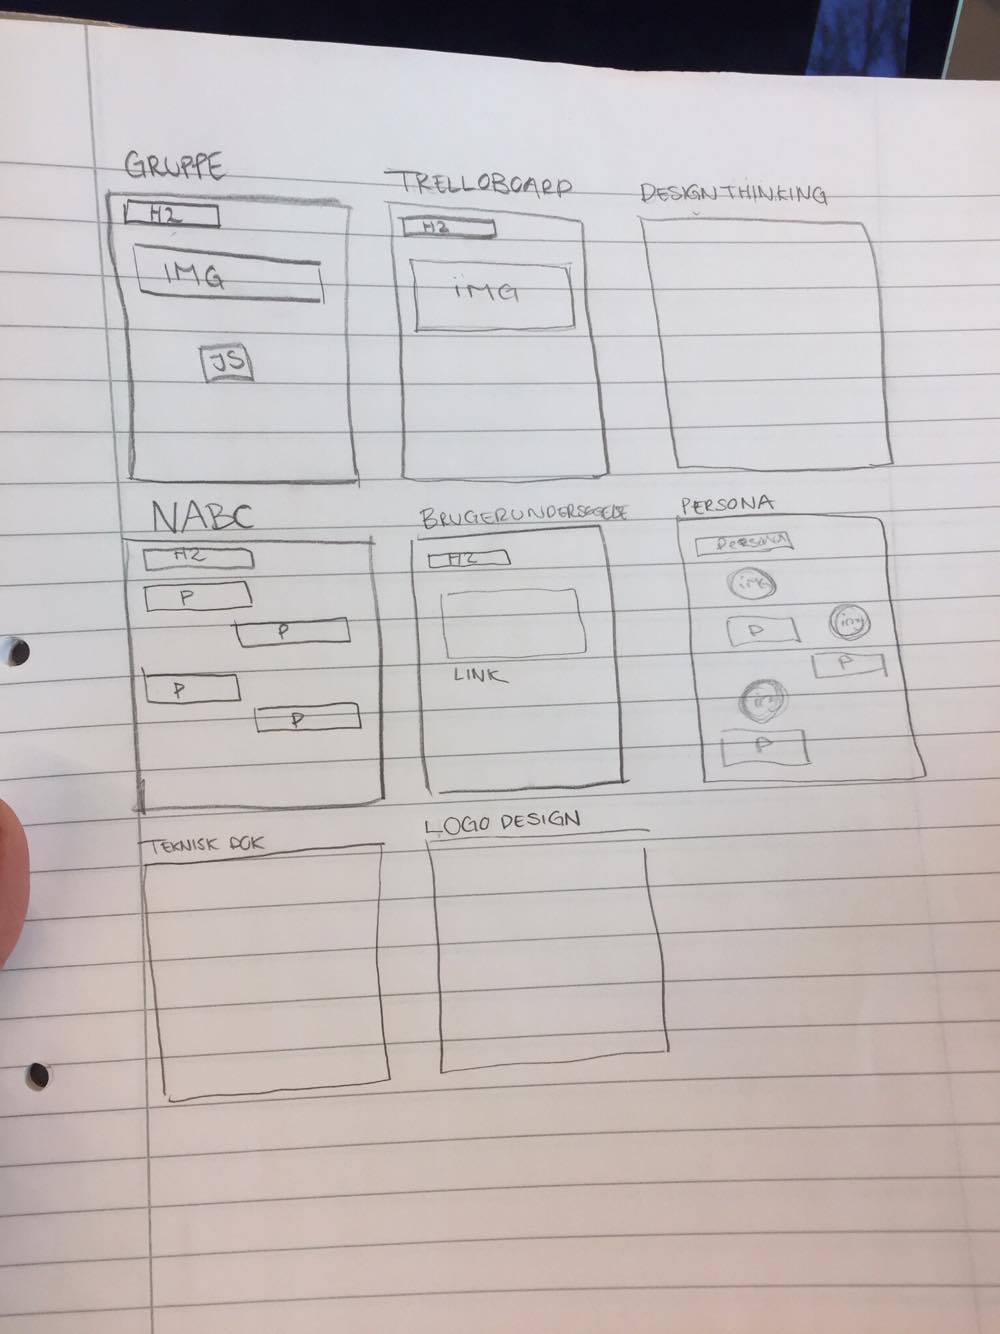 GRUPPE
H2
IMG
JS
TRELLOBOARD
H2
iMG
DESIGN THINKING
NABC
H2
P
P
P
P
BRUGERUNDERSØGELSE
H2
LINK
PERSONA
Persona
img
P
img
P
img
P
TEKNISK DOK
LOGO DESIGN